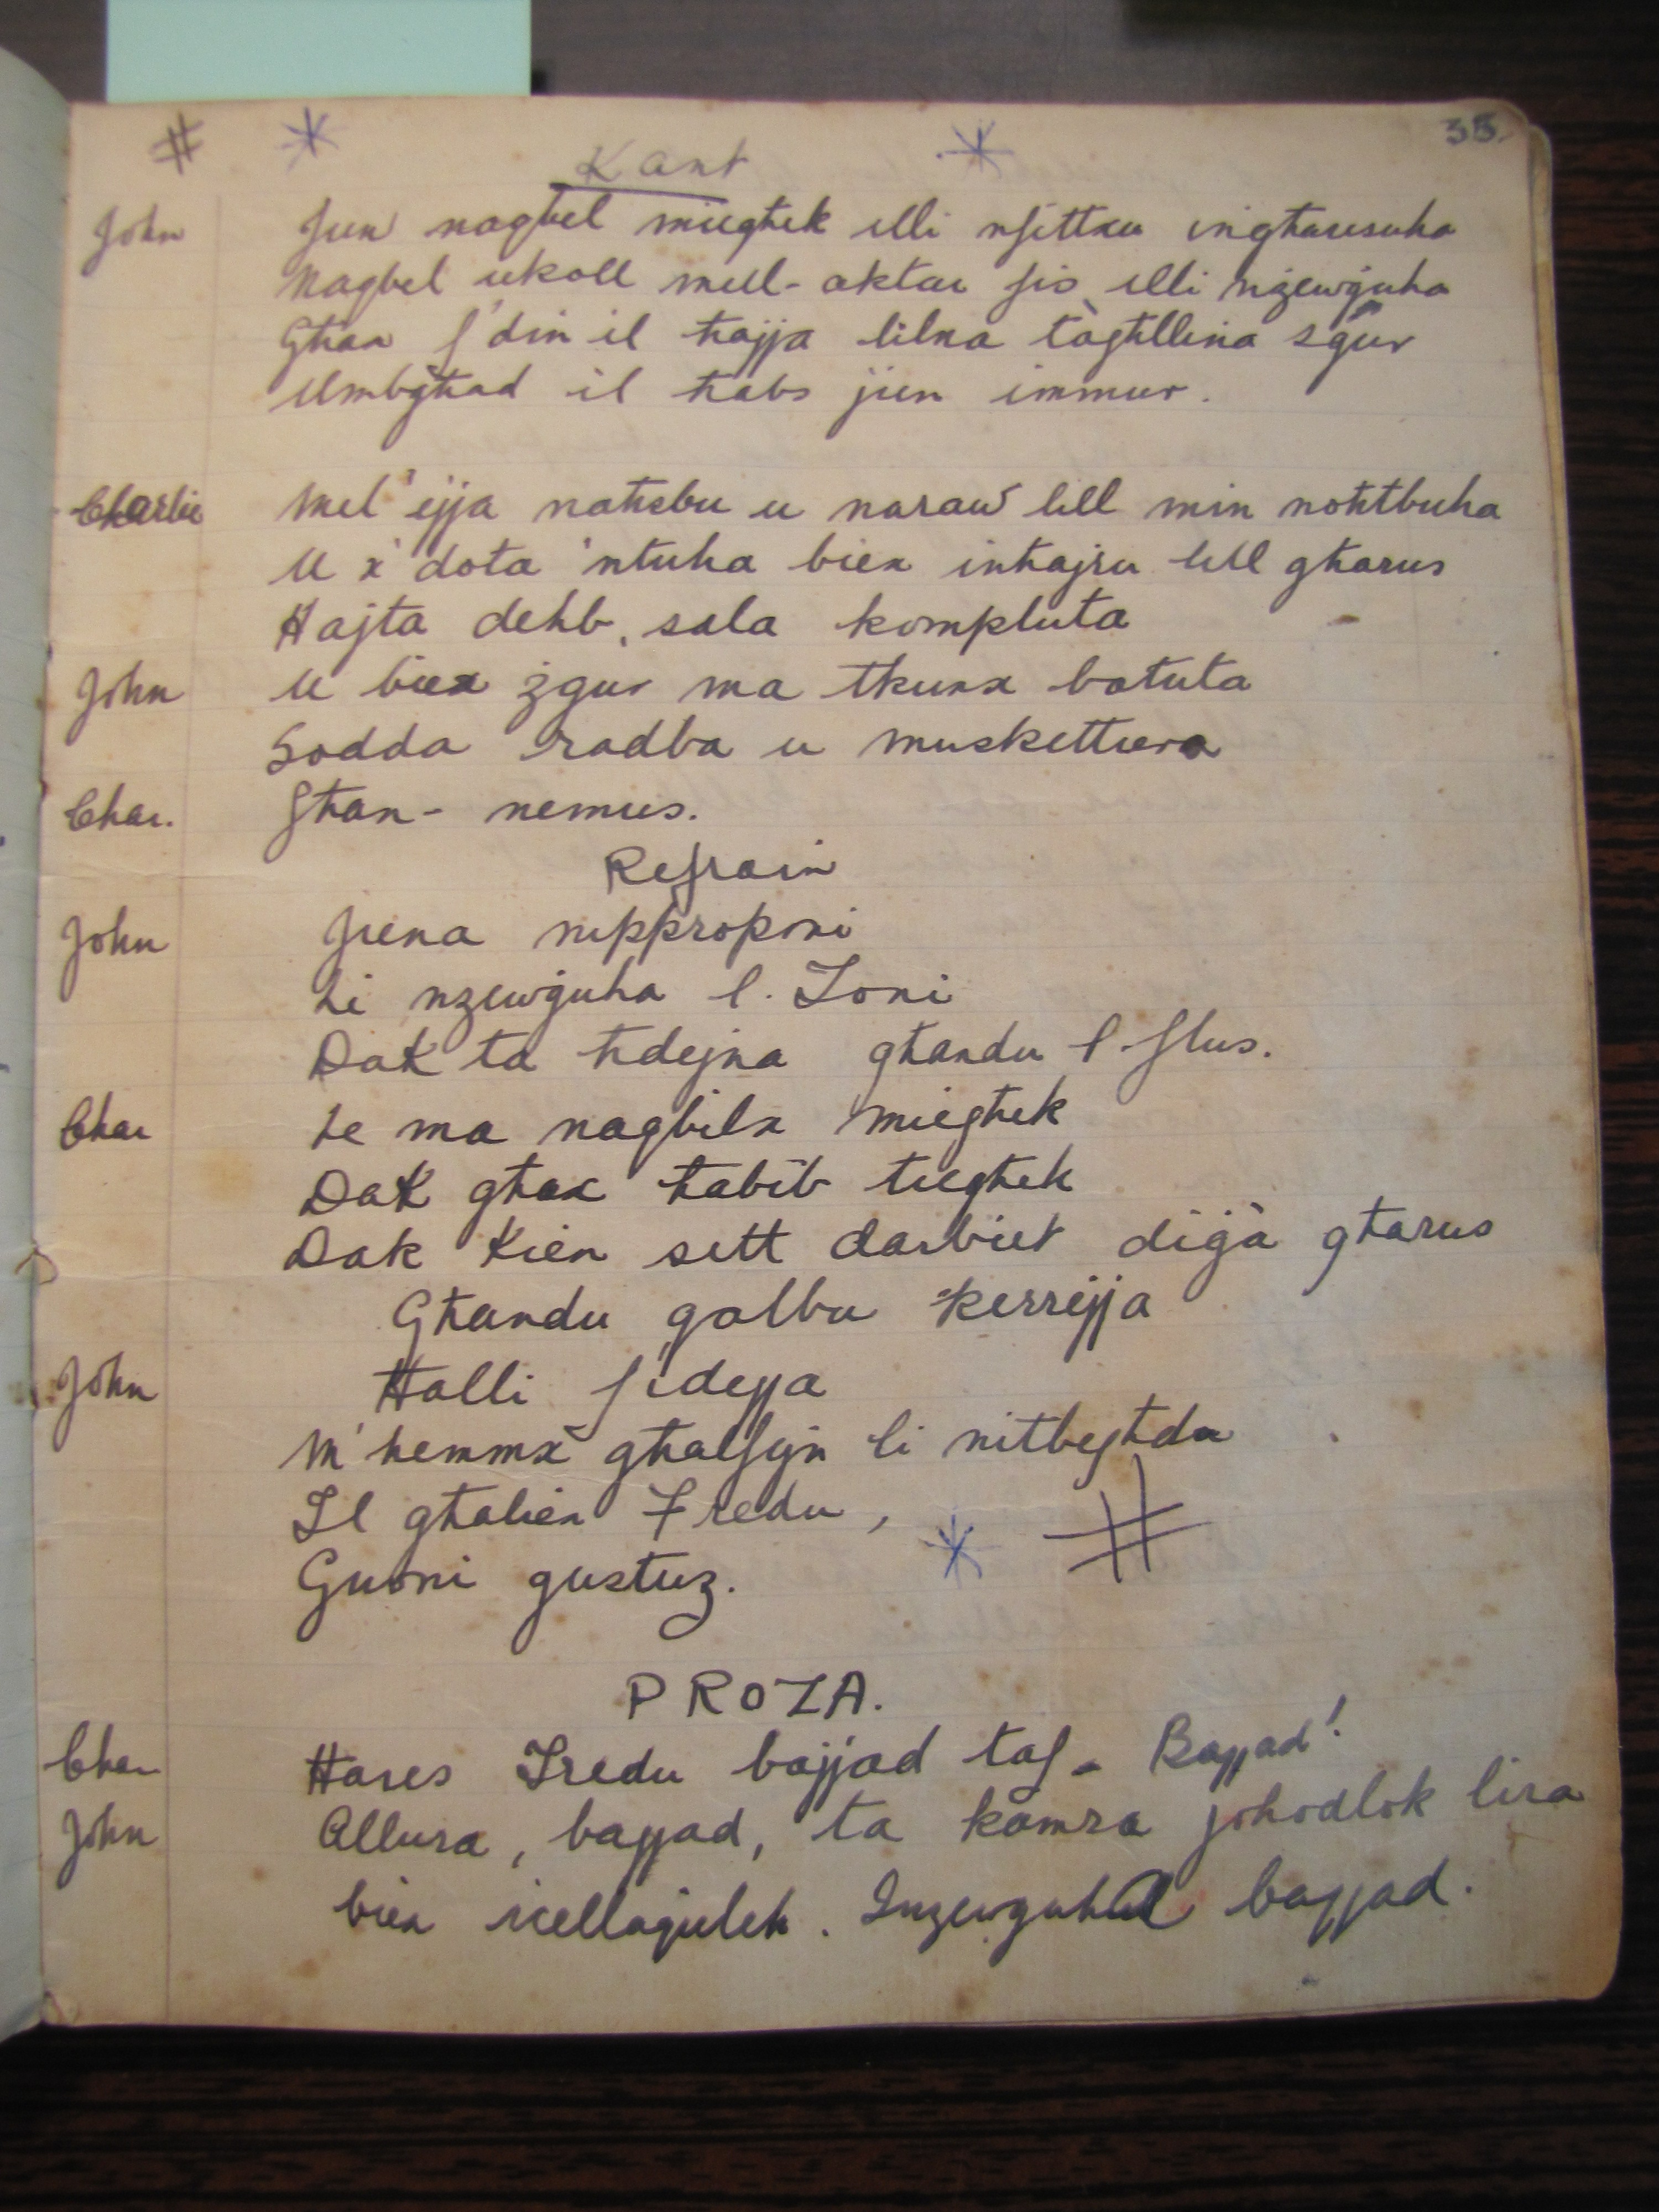 # * Kant * 35.
John Jien naqbel miegħek illi nfittxu ingħarusuha
Naqbel ukoll mill-aktar fis illi niżewġuha
Għax f'din il ħajja lilna tàgħllina sgur
Umbgħad il ħabs jien immur.
Charlie Mel' ejja naħsbu u naraw lill min noħtbuha
U x' dota 'ntuha biex inħajru lill għarus
Ħajta deheb, sala kompluta
John U biex żgur ma tkunx batuta
Sodda radba u muskettiera
Char. Għan-nemus.
Refrain
John Jiena nipproponi
Li nzewġuha l. Toni
Dak ta ħdejna għandu l-flus.
Char Le ma naqbilx miegħek
Dak għax ħabib tiegħek
Dak kien sitt darbiet diġà għarus
Għandu qalbu kerrejja
John Ħalli f'idejja
M'hemmx għalfejn li nitbegħdu
Il għaliex Fredu,
Guoni gustuz.
* #
PROZA.
Char Ħares Fredu bajjad taf - Bajjad!
John Allura, bajjad, ta kamra joħodlok lira
biex icellaqulek. Inzewguhul bajjad.